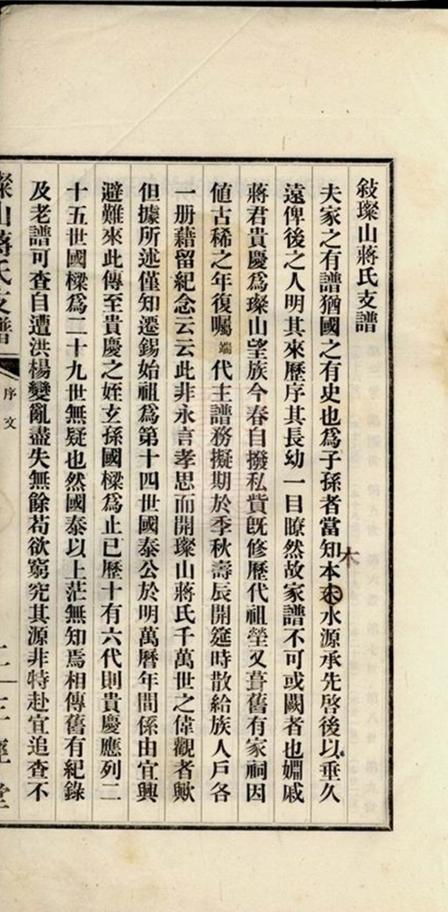 敍璨山蔣氏支譜
夫家之有譜猶國之有史也爲子孫者當知本末水源承先啓後以垂久
木
遠俾後之人明其來歷序其長幼一目瞭然故家譜不可或闕者也婣戚
蔣君貴慶爲璨山望族今春自撥私貲旣修歷代祖塋又葺舊有家祠因
値古稀之年復囑端代主譜務擬期於季秋壽辰開筵時散給族人戶各
一册藉留紀念云云此非永言孝思而開璨山蔣氏千萬世之偉觀者歟
但據所述僅知遷錫始祖爲第十四世國泰公於明萬曆年間係由宜興
避難來此傳至貴慶之姪玄孫國樑爲止已歷十有六代則貴慶應列二
十五世國樑爲二十九世無疑也然國泰以上茫無知焉相傳舊有紀錄
及老譜可查自遭洪楊變亂盡失無餘苟欲窮究其源非特赴宜追查不
璨山蔣氏支譜
序文
三徑堂